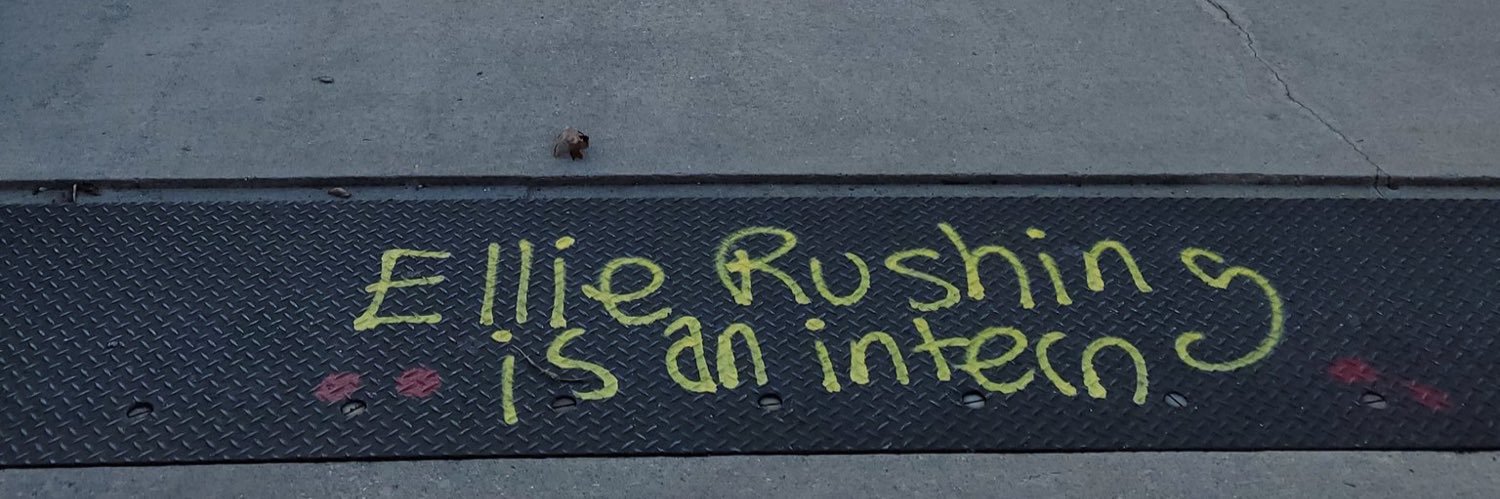 Ellie Rushing
is an intern